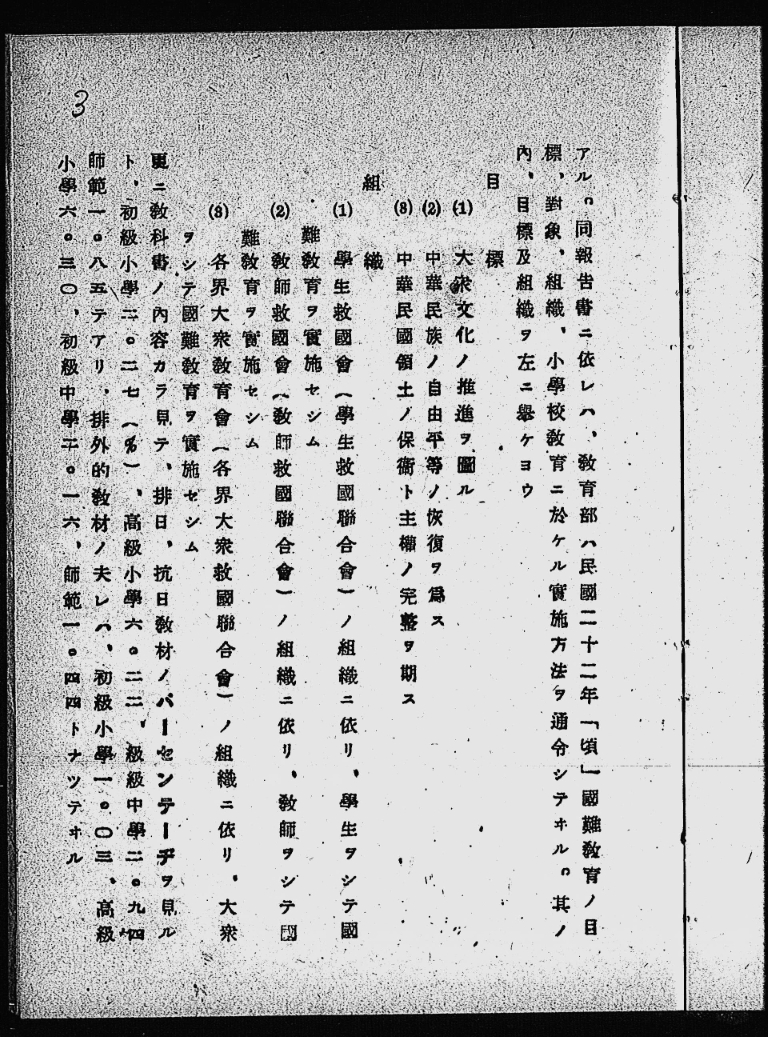 3
アル。同報告書ニ依レハ、教育部ハ民國二十二年「頃」國難教育ノ目
標、對象、組織、小學校教育ニ於ケル實施方法ヲ通令シテヰル。其ノ
內、目標及組織ヲ左ニ擧ケヨウ
目標
(1) 大衆文化ノ推進ヲ圖ル
(2) 中華民族ノ自由平等ノ恢復ヲ爲ス
(3) 中華民國領土ノ保衞ト主權ノ完整ヲ期ス
組織
(1) 學生救國會(學生救國聯合會)ノ組織ニ依リ、學生ヲシテ國
難教育ヲ實施セシム
(2) 教師救國會(教師救國聯合會)ノ組織ニ依リ、教師ヲシテ國
難教育ヲ實施セシム
(3) 各界大衆教育會(各界大衆救國聯合會)ノ組織ニ依リ、大衆
ヲシテ國難教育ヲ實施セシム
更ニ教科書ノ內容カラ見テ、排日、抗日教材ノパーセンテーヂヲ見ル
ト、初級小學二。二七(%)、高級小學六。二二、級級中學二。九四
師範一。八五テアリ、排外的教材ノ夫レハ、初級小學一。〇三、高級
小學六。三〇、初級中學二。一六、師範一。四四トナツテヰル